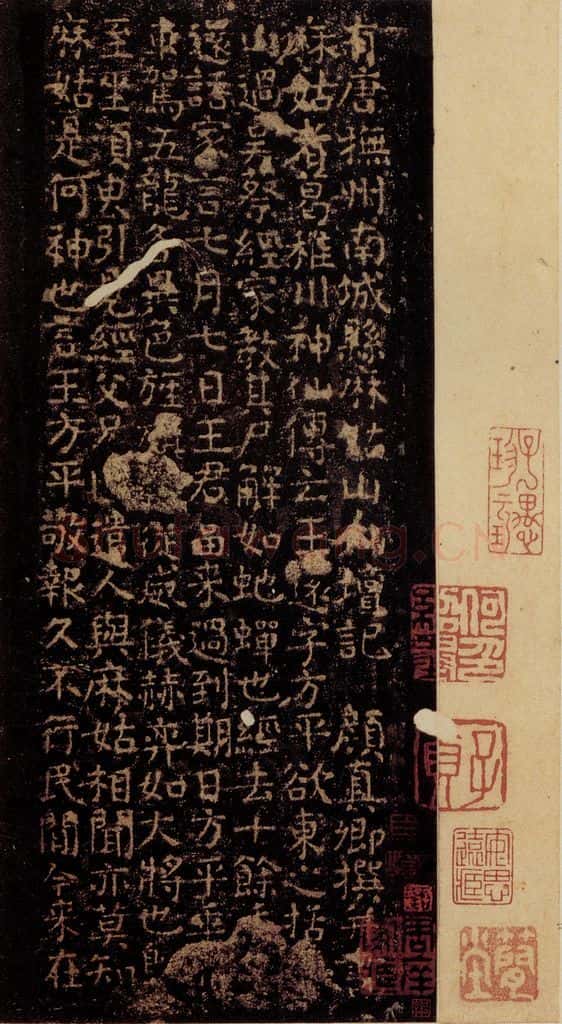 有唐撫州南城縣麻姑山仙壇記 顏真卿撰并
麻姑者葛稚川神仙傳云王遠字方平欲東之括
山過吳蔡經家教其尸解如蛇蟬也經去十餘
還語家言七月七日王君當來過到期日方平乘
車駕五龍各異色旌從威儀赫弈如大將也既
至坐須臾引見經父兄遣人與麻姑相聞亦莫知
麻姑是何神也言王方平敬報久不行民間今來在